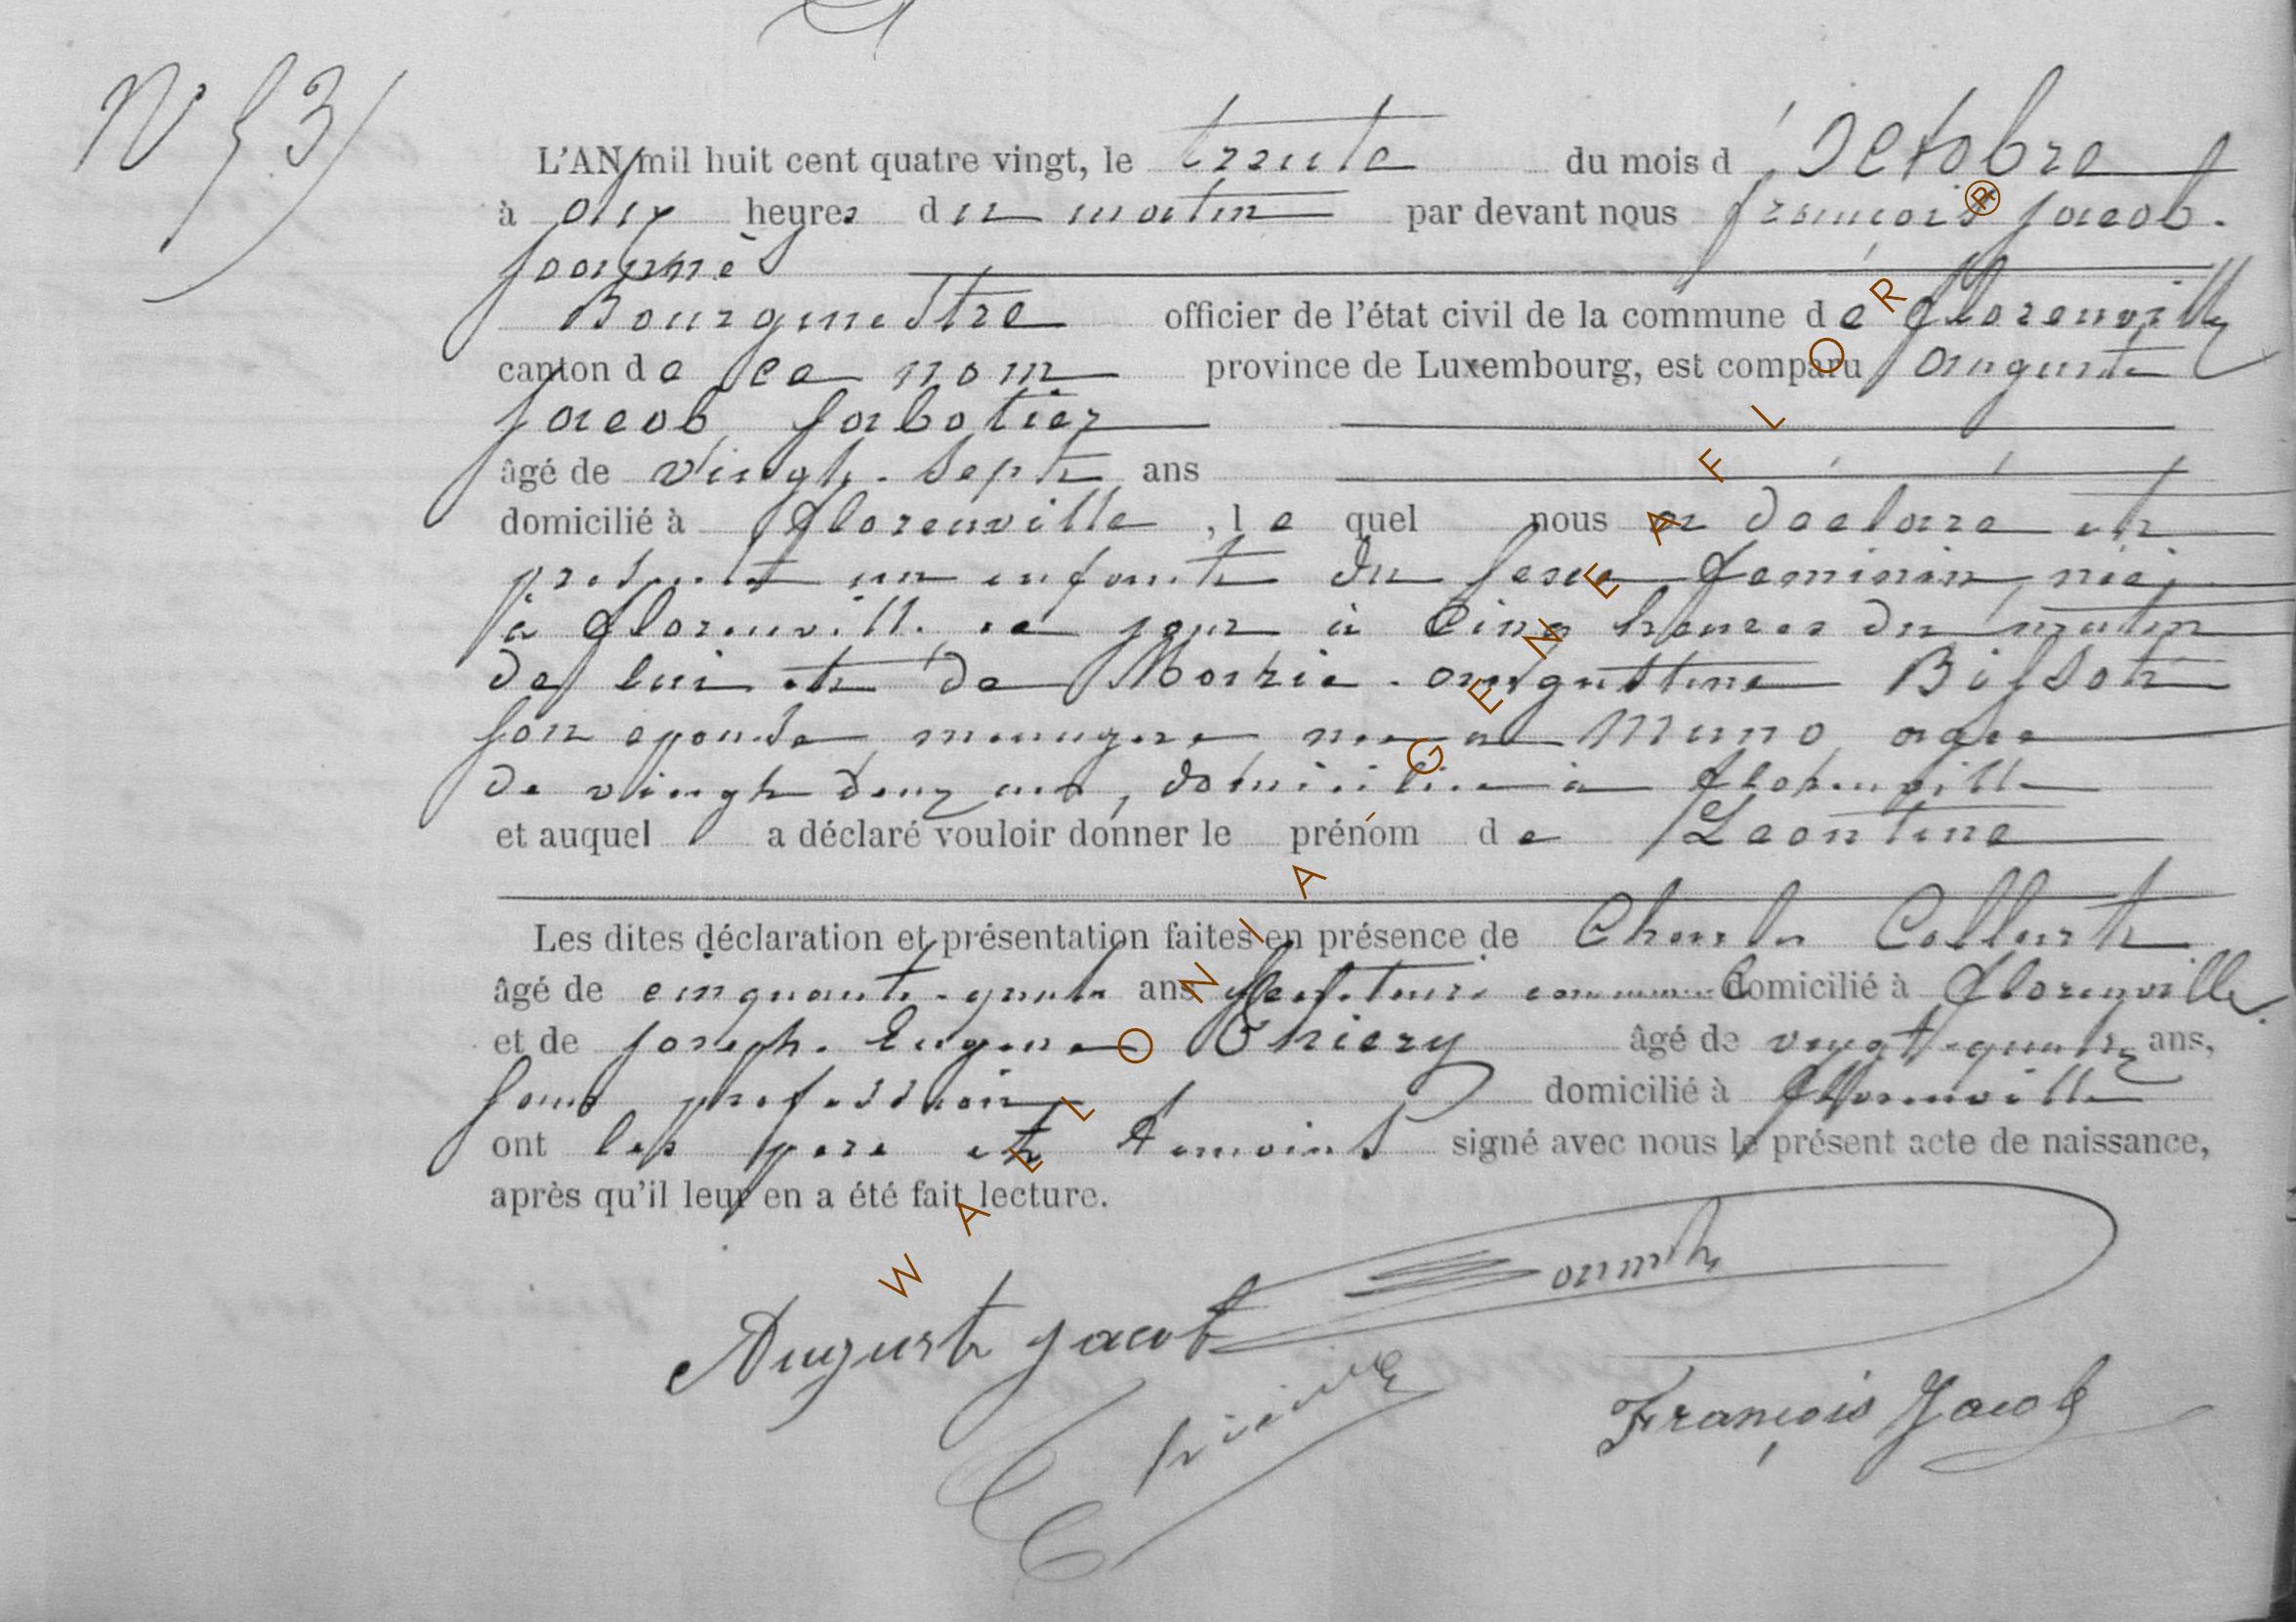 N 53
L'AN mil huit cent quatre vingt, le trente du mois d'Octobre
à onze heures du matin par devant nous françois Jacob.
Bourgmestre officier de l'état civil de la commune de florenville
canton de ce nom province de Luxembourg, est comparu auguste
jacob, sabotier
âgé de vingt-sept ans
domicilié à florenville, le quel nous a déclaré et
présenté un enfant du sexe feminin, née
à florenville ce jour à Cinq heures du matin
de lui et de Marie-augustine Bissot
son epouse, menagere née a Muno, agee
de vingt deux ans, domiciliée à florenville
et auquel a déclaré vouloir donner le prénom de Leontine
Les dites déclaration et présentation faites en présence de Charles Collart
âgé de cinquante-quatre ans domicilié à florenville
et de joseph Eugene Thiery âgé de vingt-quatre ans,
sans profession domicilié à florenville
ont les père et témoins signé avec nous le présent acte de naissance,
après qu'il leur en a été fait lecture.
Auguste jacob
François Jacob
WALLONIA GENEAFLOR®